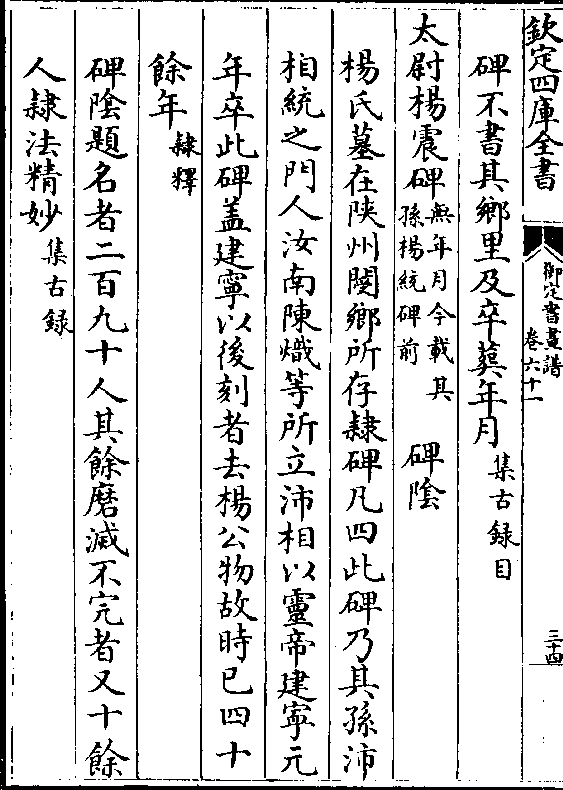 欽定四庫全書
御定書畫譜
卷六十一
三十四
碑不書其鄉里及卒葬年月集古録目
太尉楊震碑無年月今載其孫楊統碑前 碑陰
楊氏墓在陝州閿鄉所存隸碑凡四此碑乃其孫沛
相統之門人汝南陳熾等所立沛相以靈帝建寧元
年卒此碑蓋建寧以後刻者去楊公物故時已四十
餘年隸釋
碑陰題名者二百九十人其餘磨滅不完者又十餘
人隸法精妙集古録